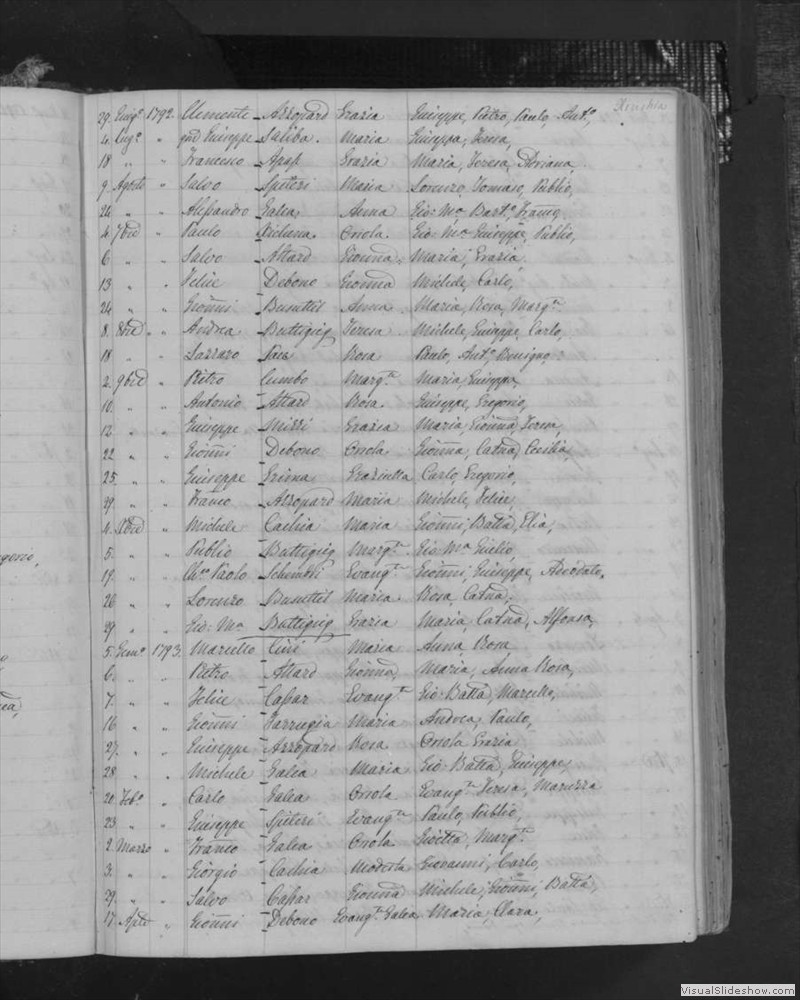 29. Giug.o 1792. Clemente Azzopard Grazia Giuseppe, Pietro, Paulo, Ant.o,
4. Lug.o " Giuseppe Saliba. Maria Giuseppa, Teresa,
18 " " Francesco Grazia Maria, Teresa, Adriana,
9. Agosto " Salvo Spiteri Maria Lorenzo, Tomaso, Publio,
24 " " Alessandro Galea Anna Gio: M.a Bart.o,
4. 7bre " Paulo Orsola. Gio: M.a Giuseppe, Publio,
6 " " Salvo Attard Gionna. Maria, Grazia.
13 " " Felice Debono Gionna Michele, Carlo,
24 " " Gionni Busuttil Anna Maria, Rosa, Marg.ta
8. 8bre " Andrea Buttigieg Teresa Michele, Giuseppe, Carlo,
18 " " Lazzaro Rosa Paulo, Ant.o Benigno
2. 9bre " Pietro Cumbo Marg.ta Maria, Giuseppa,
10. " " Antonio Attard Rosa. Giuseppe, Gregorio,
12. " " Giuseppe Mizzi Grazia Maria, Gionna, Teresa,
22 " " Gionni Debono Orsola Gionna, Catna, Cecilia,
25. " " Giuseppe Grima Graziulla Carlo, Gregorio,
29. " " Franco Azzopard Maria Michele, Felice,
4. Xbre " Michele Cachia Maria Gionni, Batta, Elia,
5. " " Publio Buttigieg Marg.ta Gio: M.a Giulio,
19. " " Paolo Schembri Evang.ta Gionni, Giuseppe, Adeodato.
26 " " Lorenzo Busuttil Maria. Rosa Catna.
29 " " Gio: M.a Buttigieg Grazia Maria, Catna, Alfonsa,
5. Gen.o 1793. Marcello Maria Anna Rosa,
6. " " Pietro Attard Gionna, Maria, Anna Rosa,
7. " " Felice Caspar Evang.ta Gio Batta, Marcello,
16 " " Gionni Farrugia Maria Andrea, Paulo,
27. " " Giuseppe Azzopard Rosa Orsola Grazia
28 " " Michele Galea Maria Gio Batta, Giuseppe,
20. Feb.o " Carlo Galea Orsola Evang.ta Teresa, Maruzza
23 " " Giuseppe Spiteri Evang.ta Paulo, Publio,
2. Marzo " Franco Galea Orsola Marg.ta
3. " " Giorgio Cachia Modesta Giovanni, Carlo,
29. " " Salvo Caspar Gionna Michele, Gionni, Batta,
17. Aprle " Gionni Debono Evang.ta Galea Maria, Clara,
VisualSlideshow.com